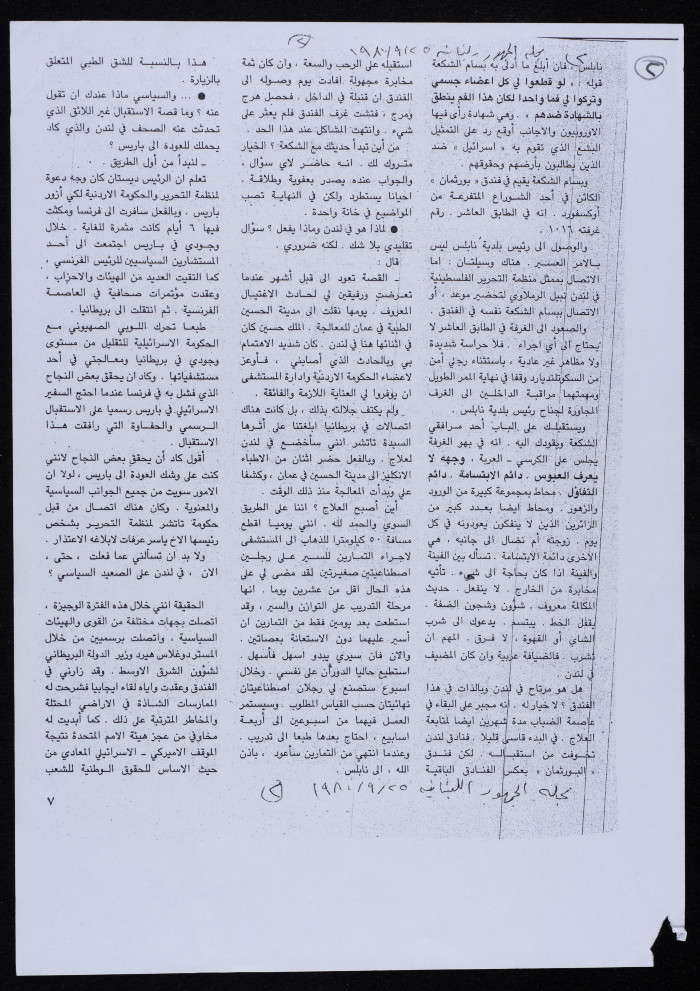 مجلة الجمهور اللبنانية ١٩٨٠/٩/٢٥
(٢)
٢
نابلس . فان أبلغ ما أدلى به بسام الشكعة
قوله : « لو قطعوا لي كل اعضاء جسمي
وتركوا لي فما واحدا لكان هذا الفم ينطق
بالشهادة ضدهم » . وهي شهادة رأى فيها
الاوروبيون والاجانب أوقع رد على التمثيل
البشع الذي تقوم به « اسرائيل » ضد
الذين يطالبون بأرضهم وحقوقهم .
وبسام الشكعة يقيم في فندق « بورتمان »
الكائن في أحد الشوراع المتفرعة من
أوكسفورد . انه في الطابق العاشر . رقم
غرفته ١٠١٦ .
والوصول الى رئيس بلدية نابلس ليس
بالامر العسير . هناك وسيلتان : اما
الاتصال بممثل منظمة التحرير الفلسطينية
في لندن نبيل الرملاوي لتحضير موعد ، أو
الاتصال ببسام الشكعة نفسه في الفندق .
والصعود الى الغرفة في الطابق العاشر لا
يحتاج الى أي اجراء . فلا حراسة شديدة
ولا مظاهر غير عادية ، باستثناء رجلي أمن
من السكوتلنديارد وقفا في نهاية الممر الطويل
ومهمتهما مراقبة الداخلين الى الغرف
المجاورة لجناح رئيس بلدية نابلس .
ويستقبلك على الباب أحد مرافقي
الشكعة ويقودك اليه . انه في بهو الغرفة
يجلس على الكرسي - العربة ، وجهه لا
يعرف العبوس . دائم الابتسامة . دائم
التفاؤل . محاط بمجموعة كبيرة من الورود
والزهور . ومحاط ايضا بعدد كبير من
الزائرين الذين لا ينفكون يعودونه في كل
يوم . زوجته أم نضال الى جانبه ، هي
الأخرى دائمة الابتسامة . تسأله بين الفينة
والفينة اذا كان بحاجة الى شيء . تأتيه
مخابرة من الخارج . لا ينفعل . حديث
المكالمة معروف . شؤون وشجون الضفة .
يقفل الخط . يبتسم . يدعوك الى شرب
الشاي أو القهوة ، لا فرق . المهم ان
تشرب . فالضيافة عربية وان كان المضيف
في لندن .
هل هو مرتاح في لندن وبالذات في هذا
الفندق ؟ لا خيار له . انه مجبر على البقاء في
عاصمة الضباب مدة شهرين ايضا لمتابعة
العلاج . في البدء قاسى قليلا . فنادق لندن
تخوفت من استقباله . لكن فندق
« البورتمان » بعكس الفنادق الباقية
استقبله على الرحب والسعة ، وان كان ثمة
مخابرة مجهولة افادت يوم وصوله الى
الفندق ان قنبلة في الداخل . فحصل هرج
ومرج ، فتشت غرف الفندق فلم يعثر على
شيء . وانتهت المشاكل عند هذا الحد .
من أين تبدأ حديثك مع الشكعة ؟ الخيار
متروك لك . انه حاضر لاي سؤال ،
والجواب عنده يصدر بعفوية وطلاقة .
احيانا يستطرد ولكن في النهاية تصب
المواضيع في خانة واحدة .
● لماذا هو في لندن وماذا يفعل ؟ سؤال
تقليدي بلا شك . لكنه ضروري .
قال :
ـ القصة تعود الى قبل أشهر عندما
تعرضت ورفيقين لي لحادث الاغتيال
المعروف . يومها نقلت الى مدينة الحسين
الطبية في عمان للمعالجة . الملك حسين كان
في اثنائها هنا في لندن . كان شديد الاهتمام
بي وبالحادث الذي أصابني ، فـأوعز
لاعضاء الحكومة الاردنية وادارة المستشفى
ان يوفروا لي العناية اللازمة والفائقة .
ولم يكتف جلالته بذلك ، بل كانت هناك
اتصالات في بريطانيا ابلغتنا على أثرها
السيدة تاتشر انني سأخضع في لندن
لعلاج . وبالفعل حضر اثنان من الاطباء
الانكليز الى مدينة الحسين في عمان ، وكشفا
علي وبدأت المعالجة منذ ذلك الوقت .
أين أصبح العلاج ؟ اننا على الطريق
السوي والحمد لله . انني يوميا اقطع
مسافة ٥٠ كيلومترا للذهاب الى المستشفى
لاجراء التمارين للسير على رجلين
اصطناعيتين صغيرتين لقد مضى لي على
هذه الحال اقل من عشرين يوما . انها
مرحلة التدريب على التوازن والسير ، وقد
استطعت بعد يومين فقط من التمارين ان
أسير عليهما دون الاستعانة بعصاتين .
والآن فان سيري يبدو اسهل فأسهل .
استطيع حاليا الدوران على نفسي . وخلال
اسبوع ستصنع لي رجلان اصطناعيتان
نهائيتان حسب القياس المطلوب . وسيستمر
العمل فيهما من اسبوعين الى أربعة
اسابيع ، احتاج بعدها طبعا الى تدريب .
وعندما انتهي من التمارين سأعود ، باذن
الله ، الى نابلس .
هذا بالنسبة للشق الطبي المتعلق
بالزيارة .
● ... والسياسي ماذا عندك ان تقول
عنه ؟ وما قصة الاستقبال غير اللائق الذي
تحدثت عنه الصحف في لندن والذي كاد
يحملك للعودة الى باريس ؟
ـ لنبدأ من أول الطريق .
تعلم ان الرئيس ديستان كان وجه دعوة
لمنظمة التحرير والحكومة الاردنية لكي أزور
باريس . وبالفعل سافرت الى فرنسا ومكثت
فيها ٦ أيام كانت مثمرة للغاية . خلال
وجودي في باريس اجتمعت الى أحد
المستشارين السياسيين للرئيس الفرنسي ،
كما التقيت العديد من الهيئات والاحزاب ،
وعقدت مؤتمرات صحافية في العاصمة
الفرنسية . ثم انتقلت الى بريطانيا .
طبعا تحرك اللوبي الصهيوني مع
الحكومة الاسرائيلية للتقليل من مستوى
وجودي في بريطانيا ومعالجتي في أحد
مستشفياتها . وكاد ان يحقق بعض النجاح
الذي فشل به في فرنسا عندما احتج السفير
الاسرائيلي في باريس رسميا على الاستقبال
الرسمي والحفاوة التي رافقت هذا
الاستقبال .
أقول كاد أن يحقق بعض النجاح لانني
كنت على وشك العودة الى باريس ، لولا ان
الامور سويت من جميع الجوانب السياسية
والمعنوية . وكان هناك اتصال من قبل
حكومة تاتشر لمنظمة التحرير بشخص
رئيسها الاخ ياسر عرفات لابلاغه الاعتذار .
ولا بد ان تسألني عما فعلت ، حتى ،
الان ، في لندن على الصعيد السياسي ؟
الحقيقة انني خلال هذه الفترة الوجيزة ،
اتصلت بجهات مختلفة من القوى والهيئات
السياسية ، واتصلت برسميين من خلال
المستر دوغلاس هيرد وزير الدولة البريطاني
لشؤون الشرق الاوسط . وقد زارني في
الفندق وعقدت واياه لقاء ايجابيا فشرحت له
الممارسات الشاذة في الاراضي المحتلة
والمخاطر المترتبة على ذلك . كما أبديت له
مخاوفي من عجز هيئة الامم المتحدة نتيجة
الموقف الاميركي ـ الاسرائيلي المعادي من
حيث الاساس للحقوق الوطنية للشعب
مجلة الجمهور اللبناني ١٩٨٠/٩/٢٥ (٢)
٧